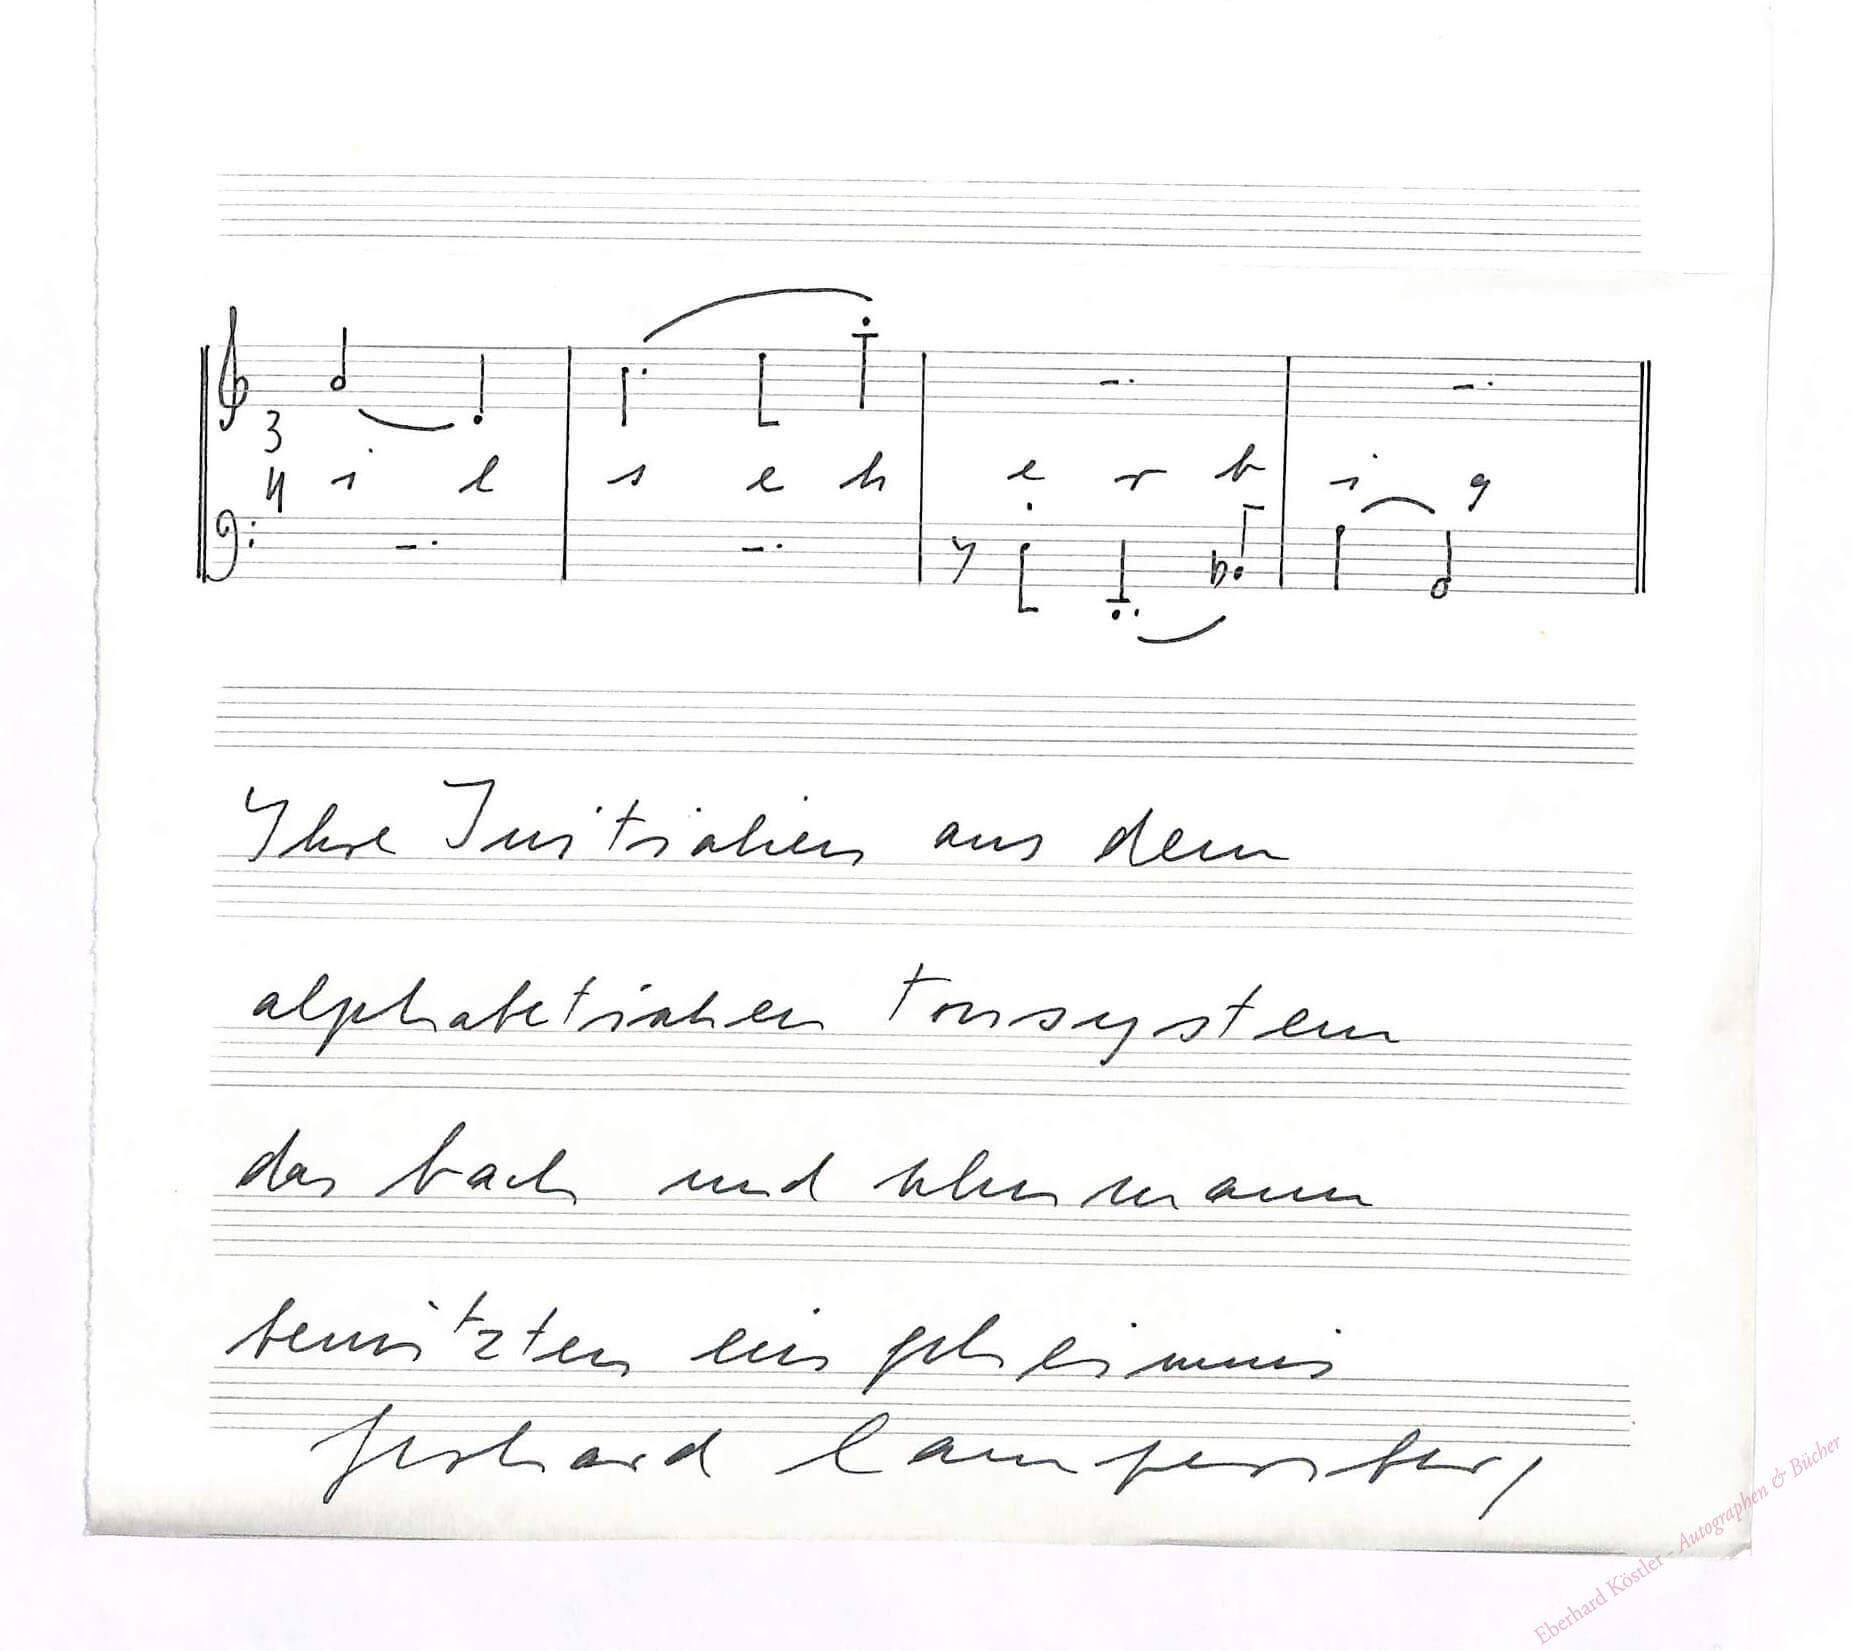 3
4
i l s e h e r b i g
Ihre Initialien aus dem
alphabetischen tonsystem
das bach und schumann
benützten ein geheimnis
gerhard lampersberg
Eberhard Köstler - Autographen & Bücher